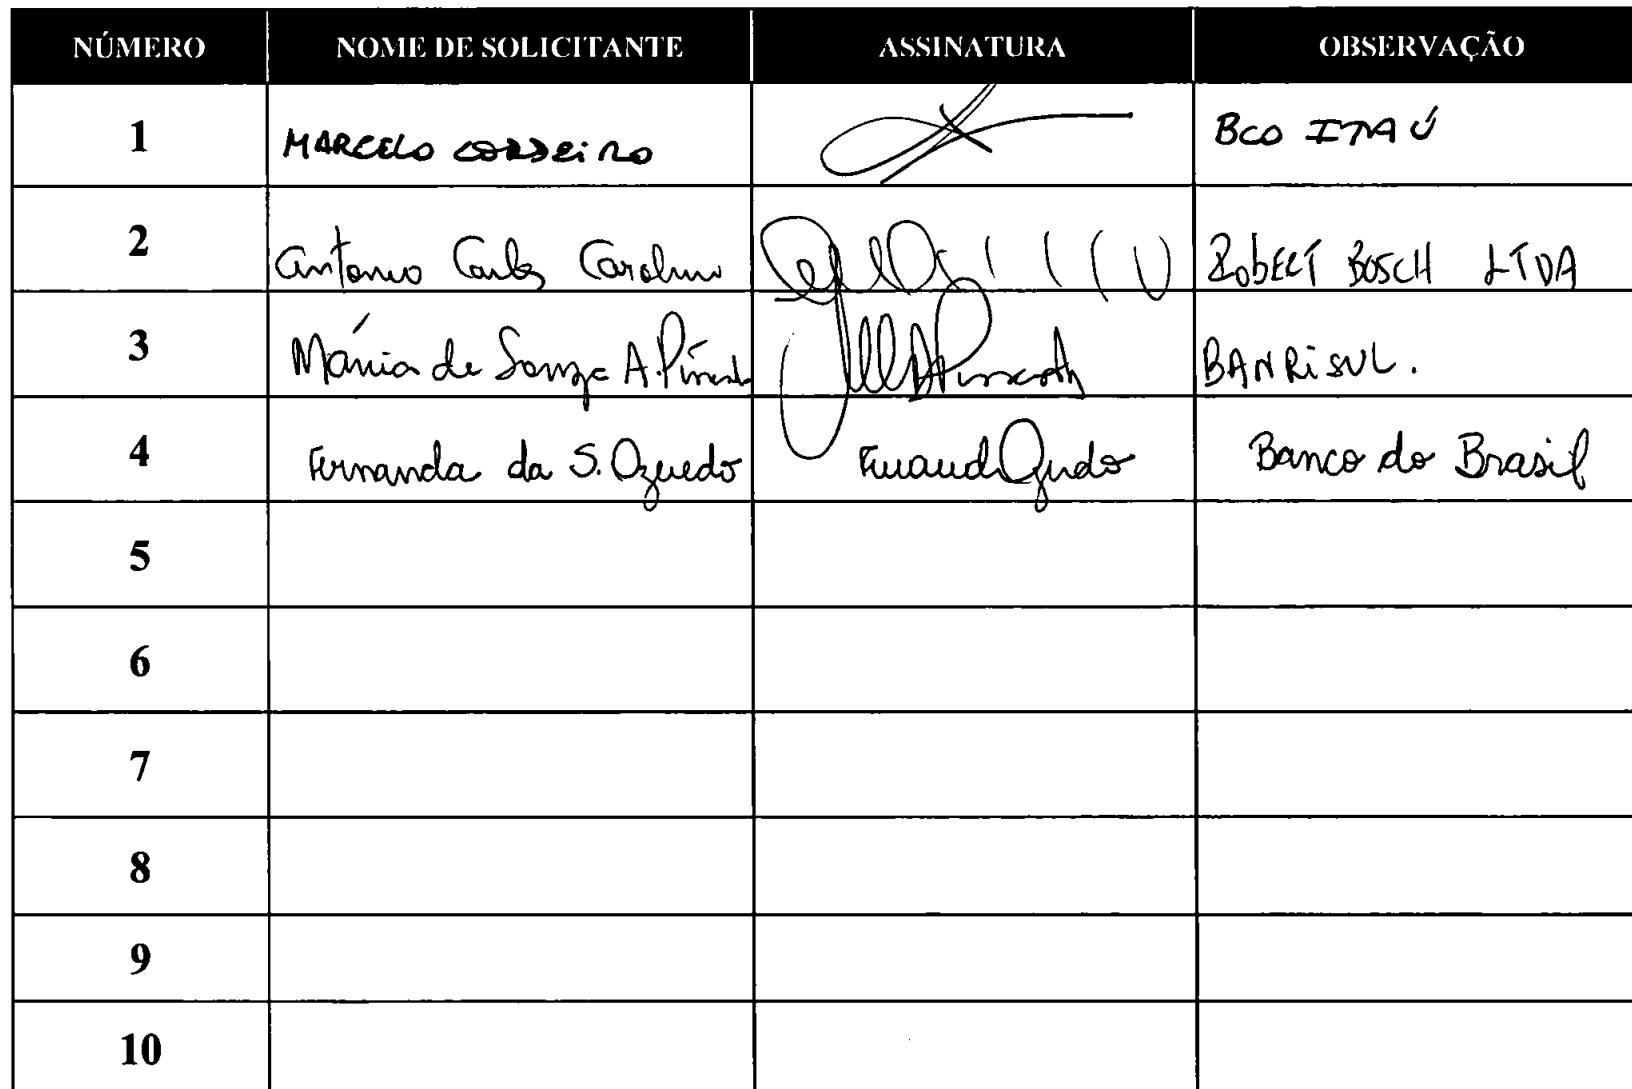 NÚMERO NOME DE SOLICITANTE ASSINATURA OBSERVAÇÃO
1 MARCELO CORDEIRO BCO ITAÚ
2 Antonio Carlos Carolino ROBERT BOSCH LTDA
3 Márcia de Souza A. BANRISUL.
4 Fernanda da S. Banco do Brasil
5
6
7
8
9
10